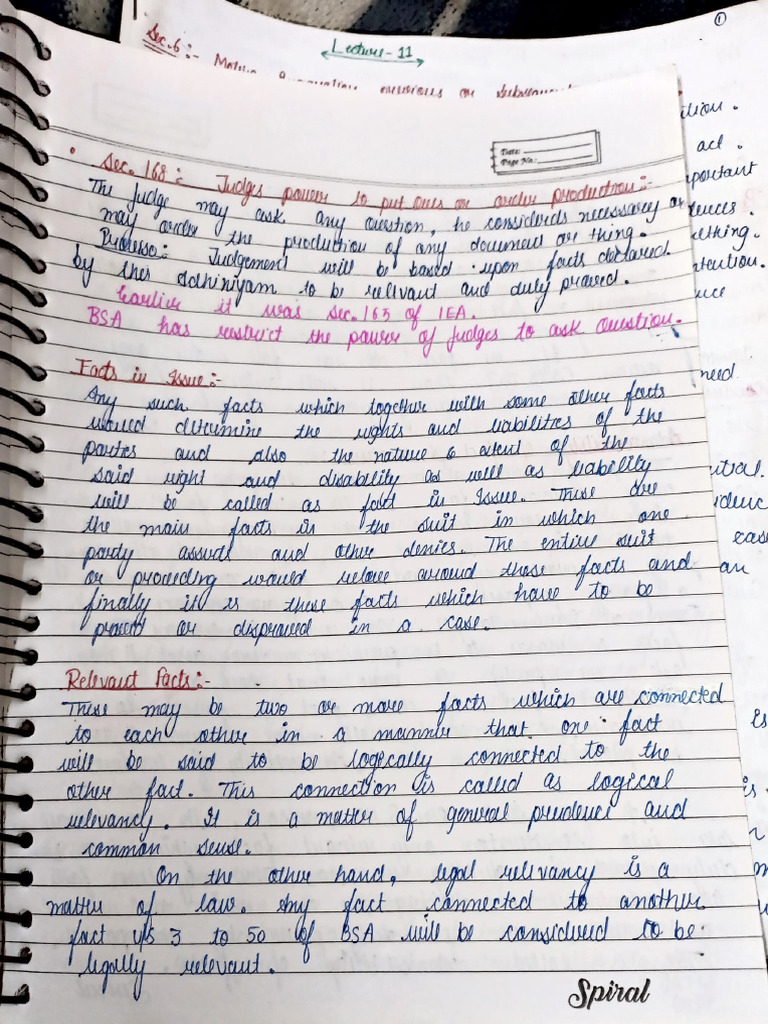 ①
Lecture - 11
Sec. 6 :-
Date:
Page No:
• Sec. 168 : Judges power to put Ques or order production :-
The Judge may ask any question, he considerds necessary or
may order the production of any document or thing.
Judgement will be based upon facts declared
by this Adhiniyam to be relevant and duly proved.
Earlier it was Sec. 165 of IEA.
BSA has restrict the power of Judges to ask Question.
Facts in Issue :-
Any such facts which together with some other facts
would determine the rights and liabilities of the
parties and also the nature & extent of the
said right and disability as well as liability
will be called as fact in Issue. These are
the main facts in the suit in which one
party asserts and other denies. The entire suit
or proceeding would revolve around those facts and
finally it is these facts which have to be
proved or disproved in a case.
Relevant Facts :-
These may be two or more facts which are connected
to each other in a manner that one fact
will be said to be logically connected to the
other fact. This connection is called as logical
relevancy. It is a matter of general prudence and
common sense.
On the other hand, legal relevancy is a
matter of law. Any fact connected to another
fact u/s 3 to 50 of BSA will be considered to be
legally relevant.
Spiral
act.
need
case
an